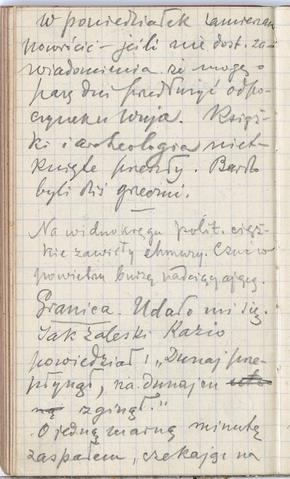 W poniedziałek zamierzam
powrócić – jeśli nie dost. za-
wiadomienia że mogę o
parę dni przedłużyć odpo-
czynek u Wuja. Książ-
ki i archeologia nietk-
knięte przeszły. Bardzo
byli dziś grzeczni.
Na widnokręgu polit. cięż-
kie zawisły chmury. Czuć w
powietrzu burzę nadciągającą.
Granica. Udało mi się.
Jak Zaleski Kazio
powiedział: „Dunaj prze-
płynął, na dunajcu
zginął."
O jedną marną minutę
zaspałem, czekając na